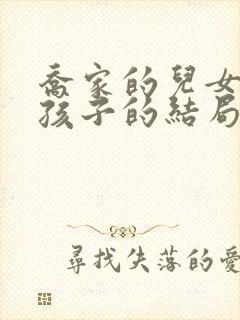 喬家的兒女
孩子的結局
尋找失落的愛